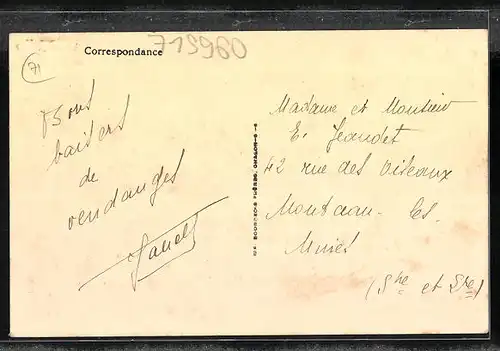 Correspondance
715960
71
Bons
baisers
de
vendanges
Madame et Monsieur
E. Jeandet
42 rue des Oiseaux
Montceau-les
Mines
(Sne et Lre)
BOURGEOIS FRERES, CHALON-S-S